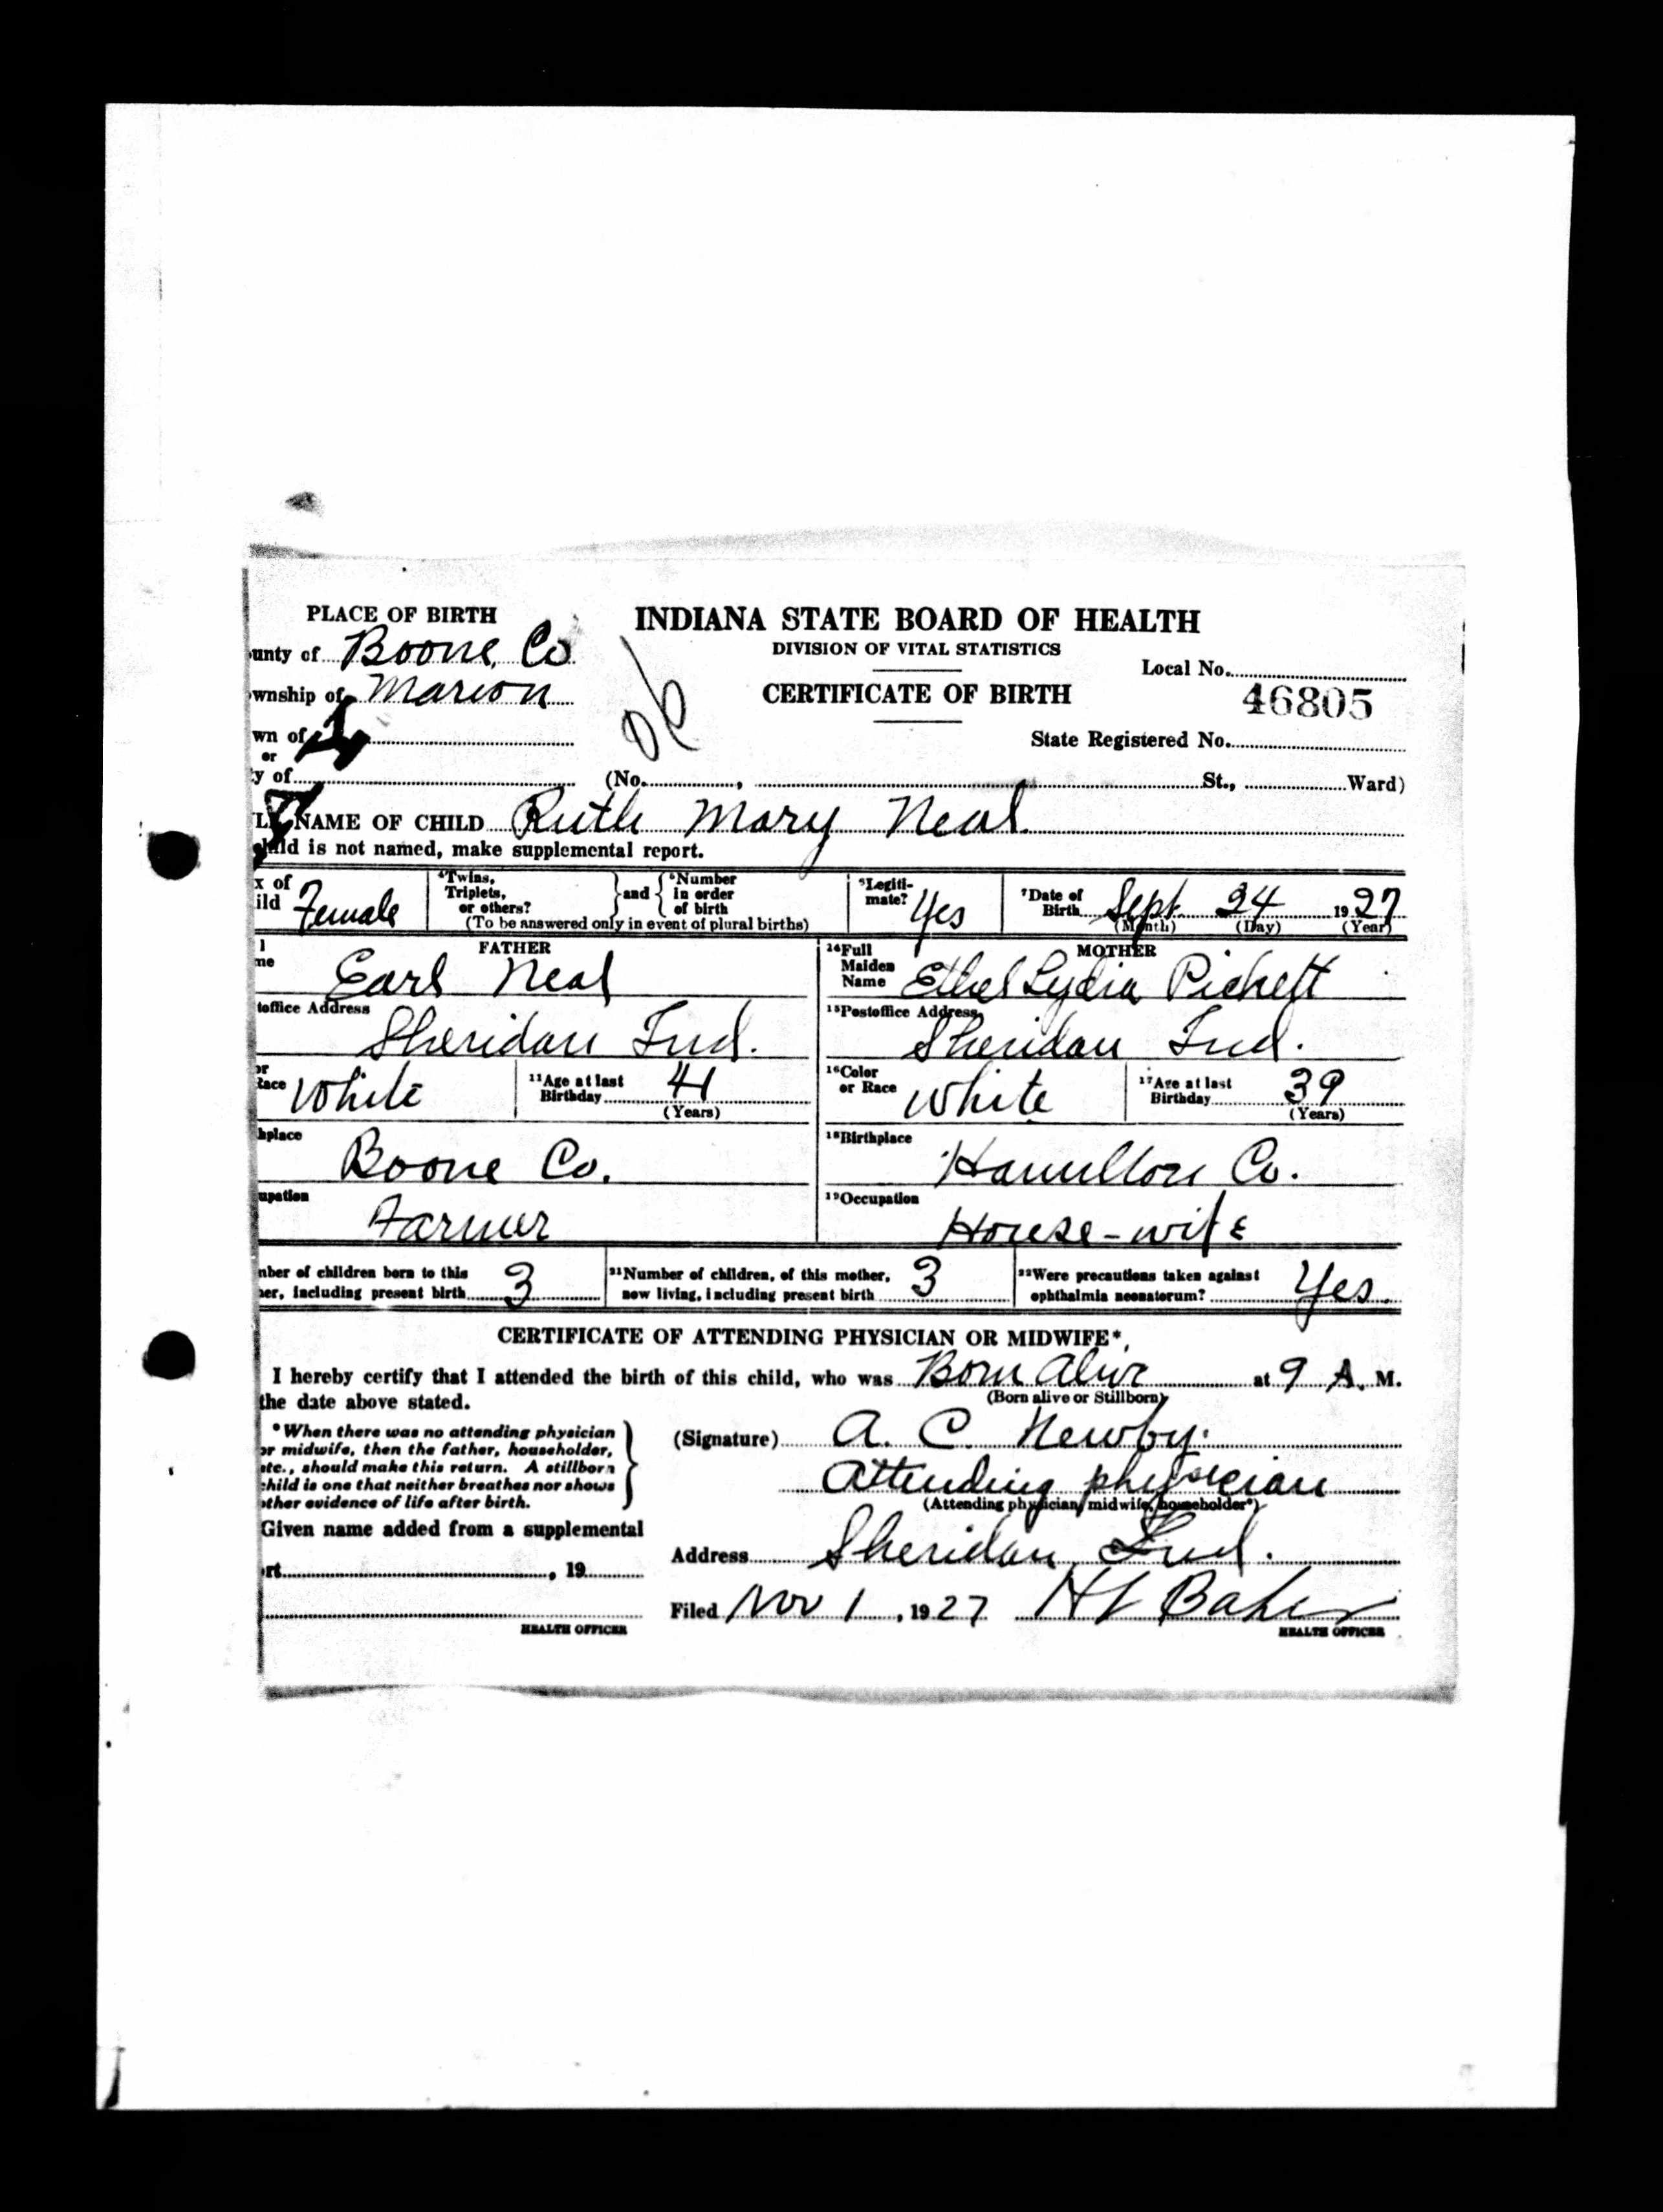 PLACE OF BIRTH
unty of Boone Co
wnship of Marion
wn of
or
y of
INDIANA STATE BOARD OF HEALTH
DIVISION OF VITAL STATISTICS
CERTIFICATE OF BIRTH
Local No.
46805
State Registered No.
(No. , St., Ward)
NAME OF CHILD Ruth Mary Neal
child is not named, make supplemental report.
x of
ild Female
4Twins,
Triplets,
or others?
and
6Number
in order
of birth
(To be answered only in event of plural births)
Legiti-
mate? Yes
7Date of
Birth Sept. 24 1927
(Month) (Day) (Year)
FATHER
me Earl Neal
toffice Address
Sheridan Ind.
or
Race White
11Age at last
Birthday 41
(Years)
hplace
Boone Co.
upation
Farmer
MOTHER
Full
Maiden
Name Ethel Lydia Pickett
15Postoffice Address
Sheridan Ind.
16Color
or Race White
17Age at last
Birthday 39
(Years)
18Birthplace
Hamilton Co.
19Occupation
House-wife
nber of children born to this
her, including present birth 3
21Number of children, of this mother,
now living, including present birth 3
22Were precautions taken against
ophthalmia neonatorum? Yes.
CERTIFICATE OF ATTENDING PHYSICIAN OR MIDWIFE*
I hereby certify that I attended the birth of this child, who was Born Alive at 9 A. M.
(Born alive or Stillborn)
the date above stated.
*When there was no attending physician
or midwife, then the father, householder,
etc., should make this return. A stillborn
child is one that neither breathes nor shows
other evidence of life after birth.
(Signature) A. C. Newby.
Attending physician
(Attending physician, midwife, householder*)
Given name added from a supplemental
rt , 19
HEALTH OFFICER
Address Sheridan, Ind.
Filed Nov 1, 1927 H L Baker
HEALTH OFFICER